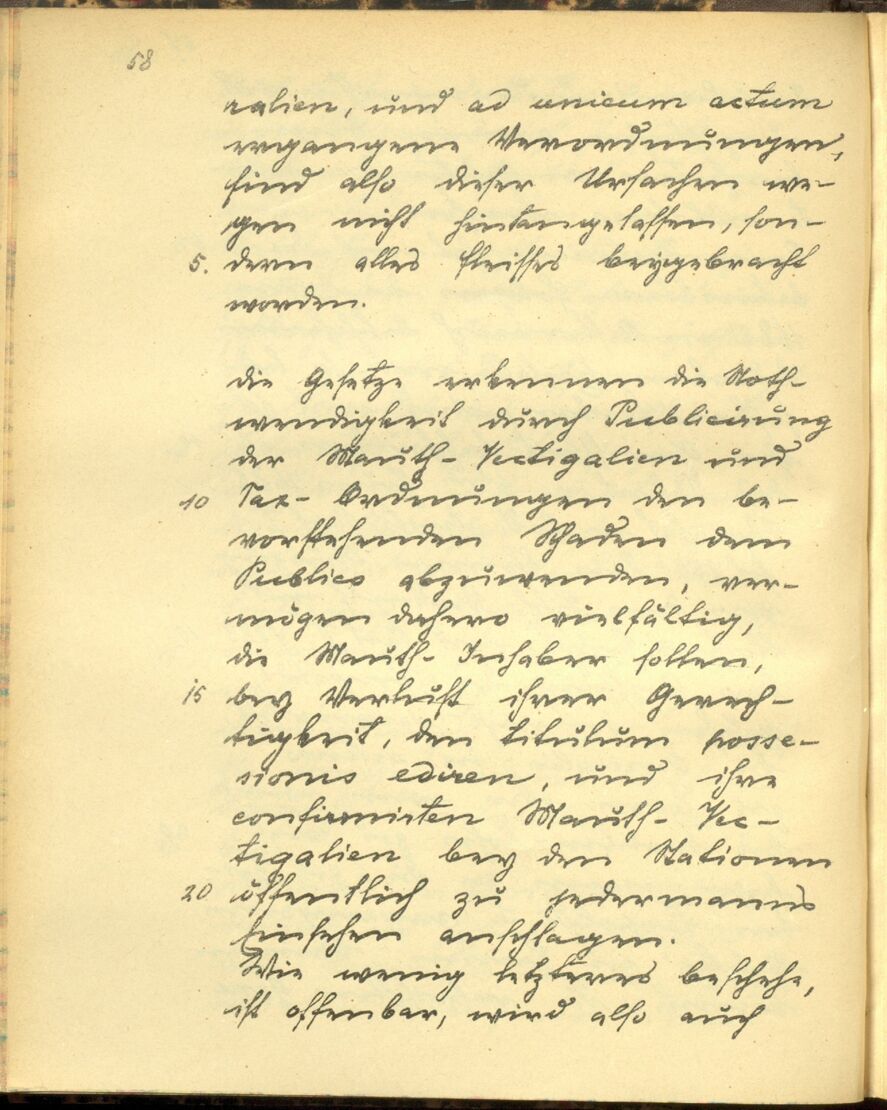 58
ralien, und ad unicum actum
ergangene Verordnungen,
sind also dieser Ursachen we-
gen nicht hintangelassen, son-
5. dern alles fleisses beygebracht
worden.
die Gesetze erkennen die Noth-
wendigkeit durch Publicirung
der Mauth-Vectigalien und
10 Tax-Ordnungen den be-
vorstehenden Schaden dem
Publico abzuwenden, ver-
mögen dahero vielfältig,
die Mauth-Inhaber sollen,
15 bey Verlust ihrer Gerech-
tigkeit, den titulum posse-
sionis ediren, und ihre
confirmirten Mauth-Vec-
tigalien bey den Stationen
20 öffentlich zu jedermanns
Einsehen anschlagen.
Wie wenig letzteres beschehe,
ist offenbar, wird also auch